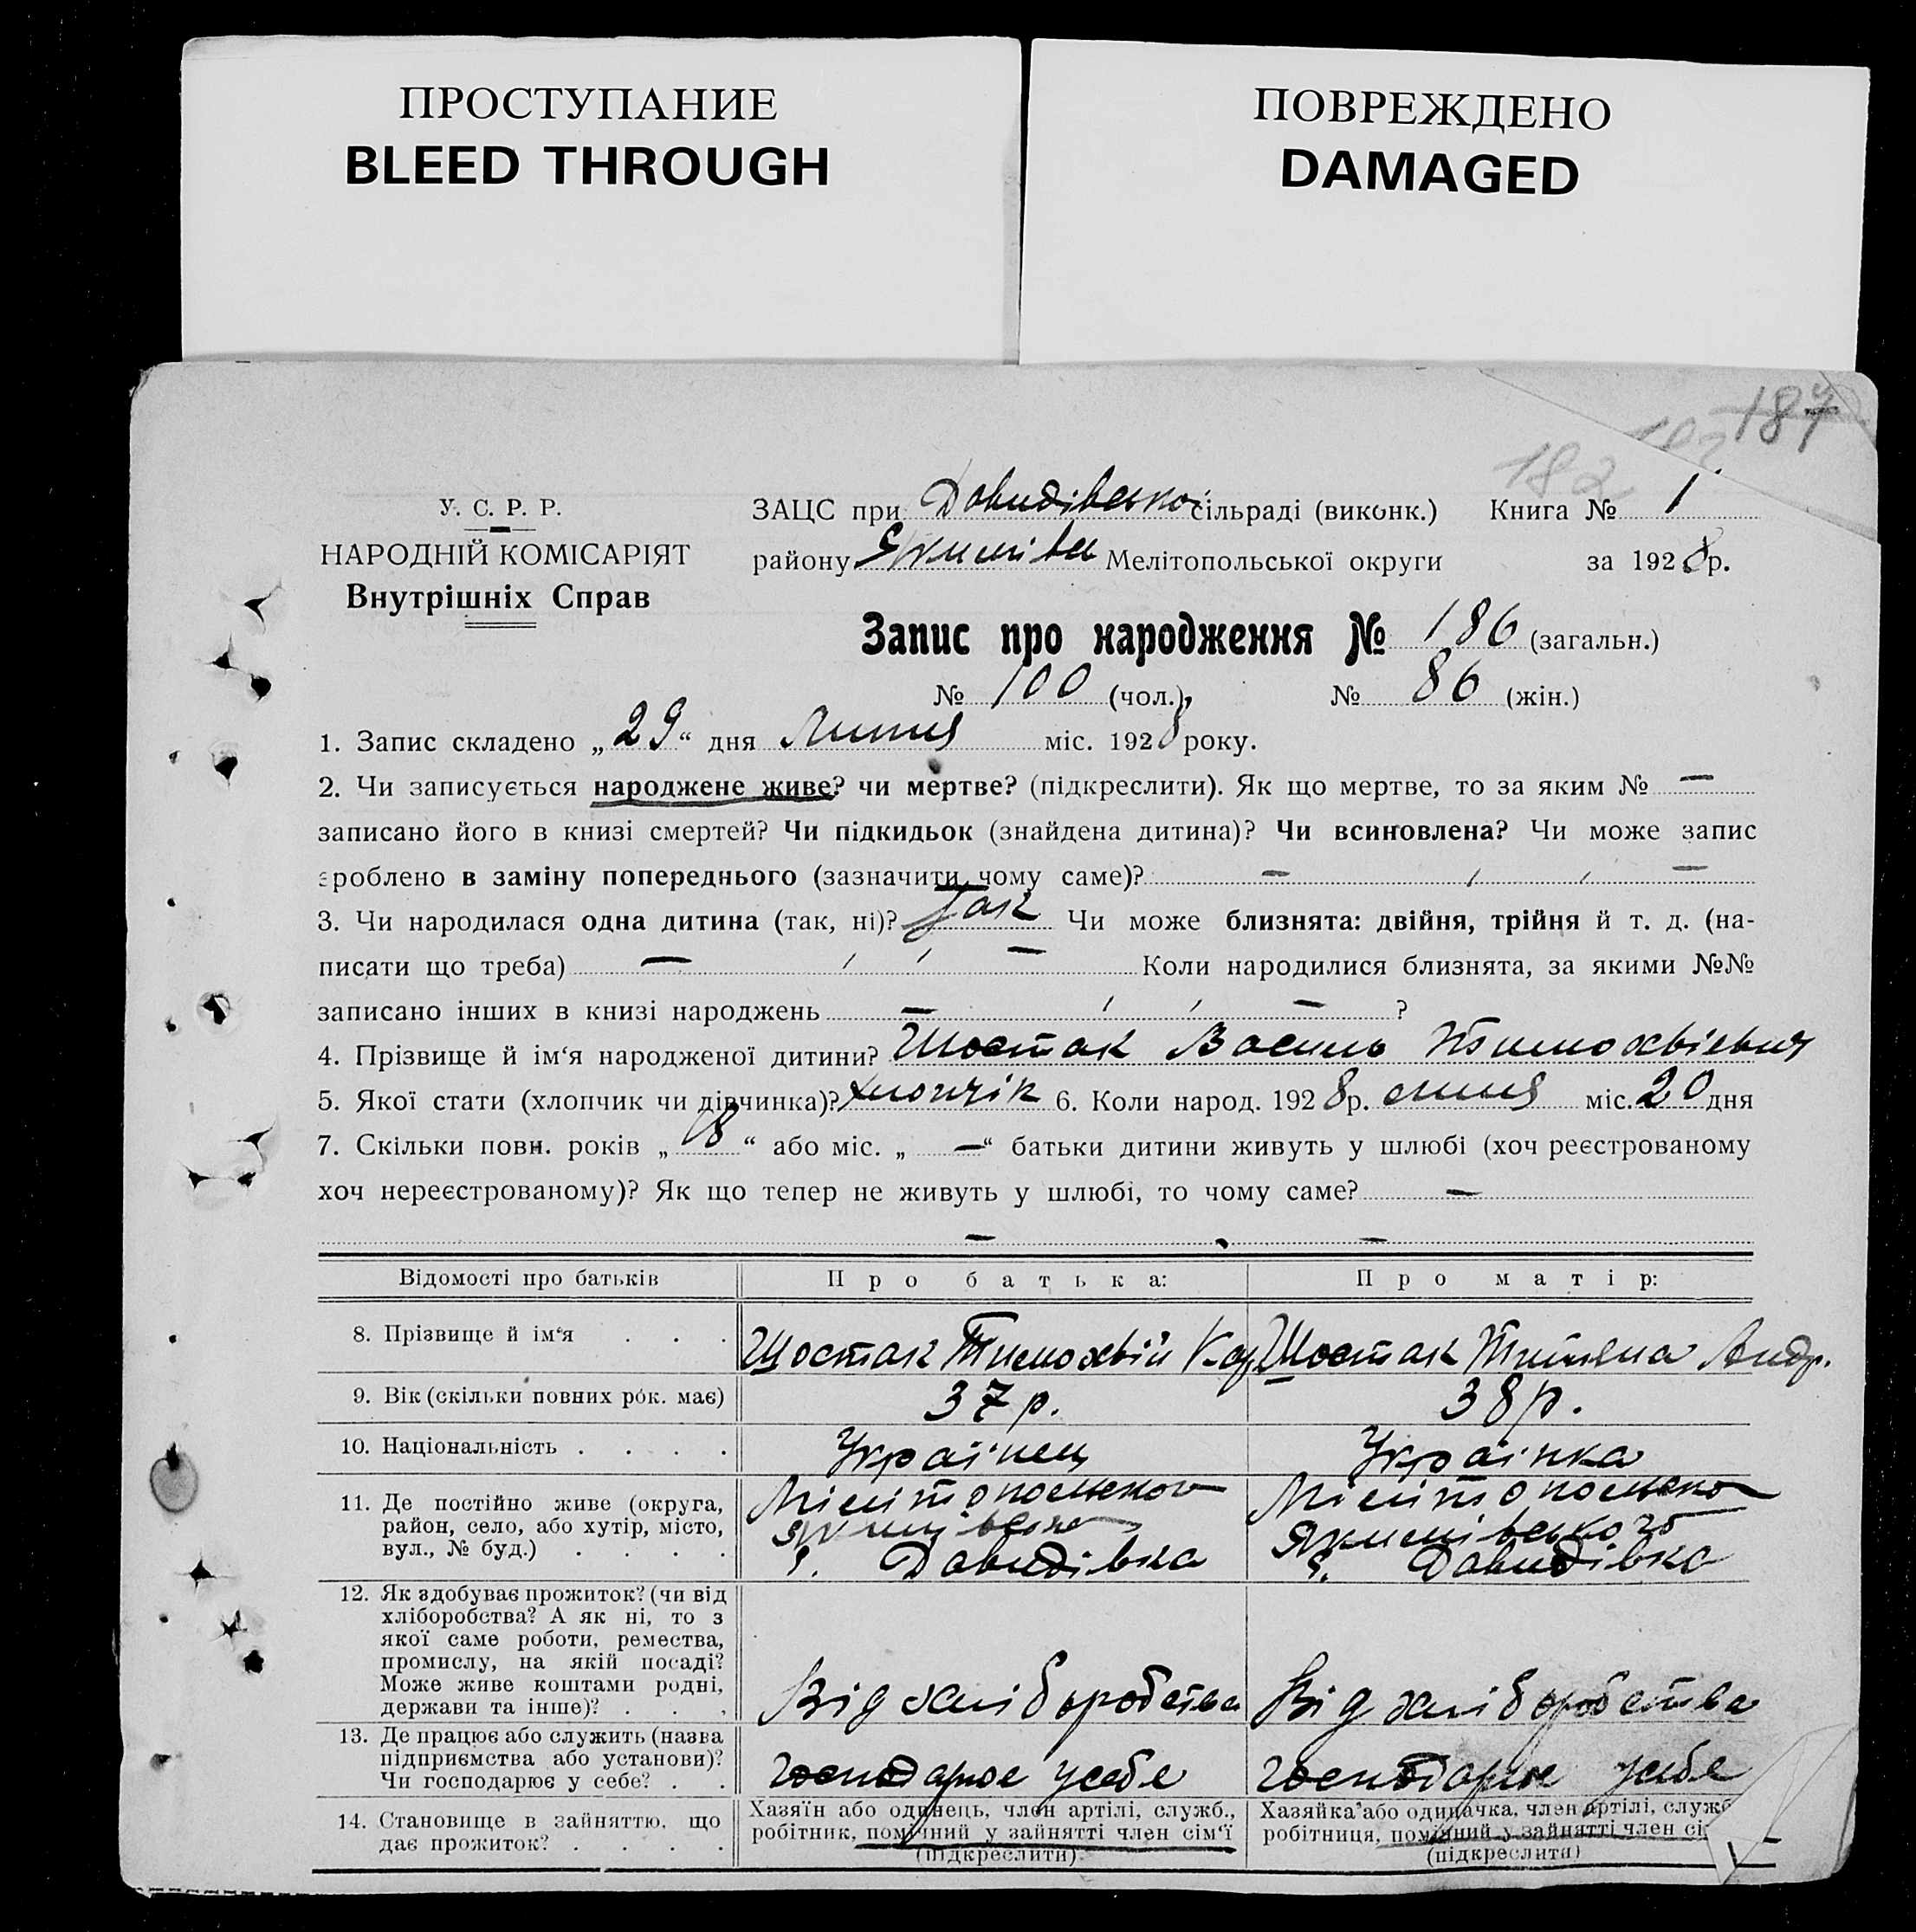 ПРОСТУПАНИЕ
BLEED THROUGH
ПОВРЕЖДЕНО
DAMAGED
187
182
У. С. Р. Р.
НАРОДНІЙ КОМІСАРІЯТ
Внутрішніх Справ
ЗАЦС при Довидівської сільраді (виконк.) Книга № 1
району Якимівск Мелітопольської округи за 1928 р.
Запис про народження № 186 (загальн.)
№ 100 (чол.), № 86 (жін.)
1. Запис складено „29“ дня Липня міс. 1928 року.
2. Чи записується народжене живе? чи мертве? (підкреслити). Як що мертве, то за яким № —
записано його в книзі смертей? Чи підкидьок (знайдена дитина)? Чи всиновлена? Чи може запис
зроблено в заміну попереднього (зазначити чому саме)? — —
3. Чи народилася одна дитина (так, ні)? Так Чи може близнята: двійня, трійня й т. д. (на-
писати що треба) — — Коли народилися близнята, за якими №№
записано інших в книзі народжень — — ?
4. Прізвище й ім‘я народженої дитини? Шостак Василь Тимохвієвич
5. Якої стати (хлопчик чи дівчинка)? Хлопчік 6. Коли народ. 1928 р. липня міс. 20 дня
7. Скільки повн. років „18“ або міс. „—“ батьки дитини живуть у шлюбі (хоч реєстрованому
хоч нереєстрованому)? Як що тепер не живуть у шлюбі, то чому саме? —
— —
Відомості про батьків Про батька: Про матір:
8. Прізвище й ім‘я . . . Шостак Тимохвій Шостак Титяна Андр.
9. Вік (скільки повних рок. має) 37 р. 38 р.
10. Національність . . . . Українец Українка
11. Де постійно живе (округа,
район, село, або хутір, місто,
вул., № буд.) . . . .
Мілітопольског
с. Давидівка
Мілітопольског
Якимівського
с. Давидівка
12. Як здобуває прожиток? (чи від
хліборобства? А як ні, то з
якої саме роботи, ремества,
промислу, на якій посаді?
Може живе коштами родні,
держави та інше)? . . .
Від хліборобства Від хліборобства
13. Де працює або служить (назва
підприємства або установи)?
Чи господарює у себе? . .
господарює усебе господарює усебе
14. Становище в зайняттю, що
дає прожиток? . . . .
Хазяїн або одинець, член артілі, служб.,
робітник, помічний у зайнятті член сім‘ї
(підкреслити)
Хазяйка або одиначка, член артілі, служб
робітниця, помічний у зайнятті член сі
(підкреслити)